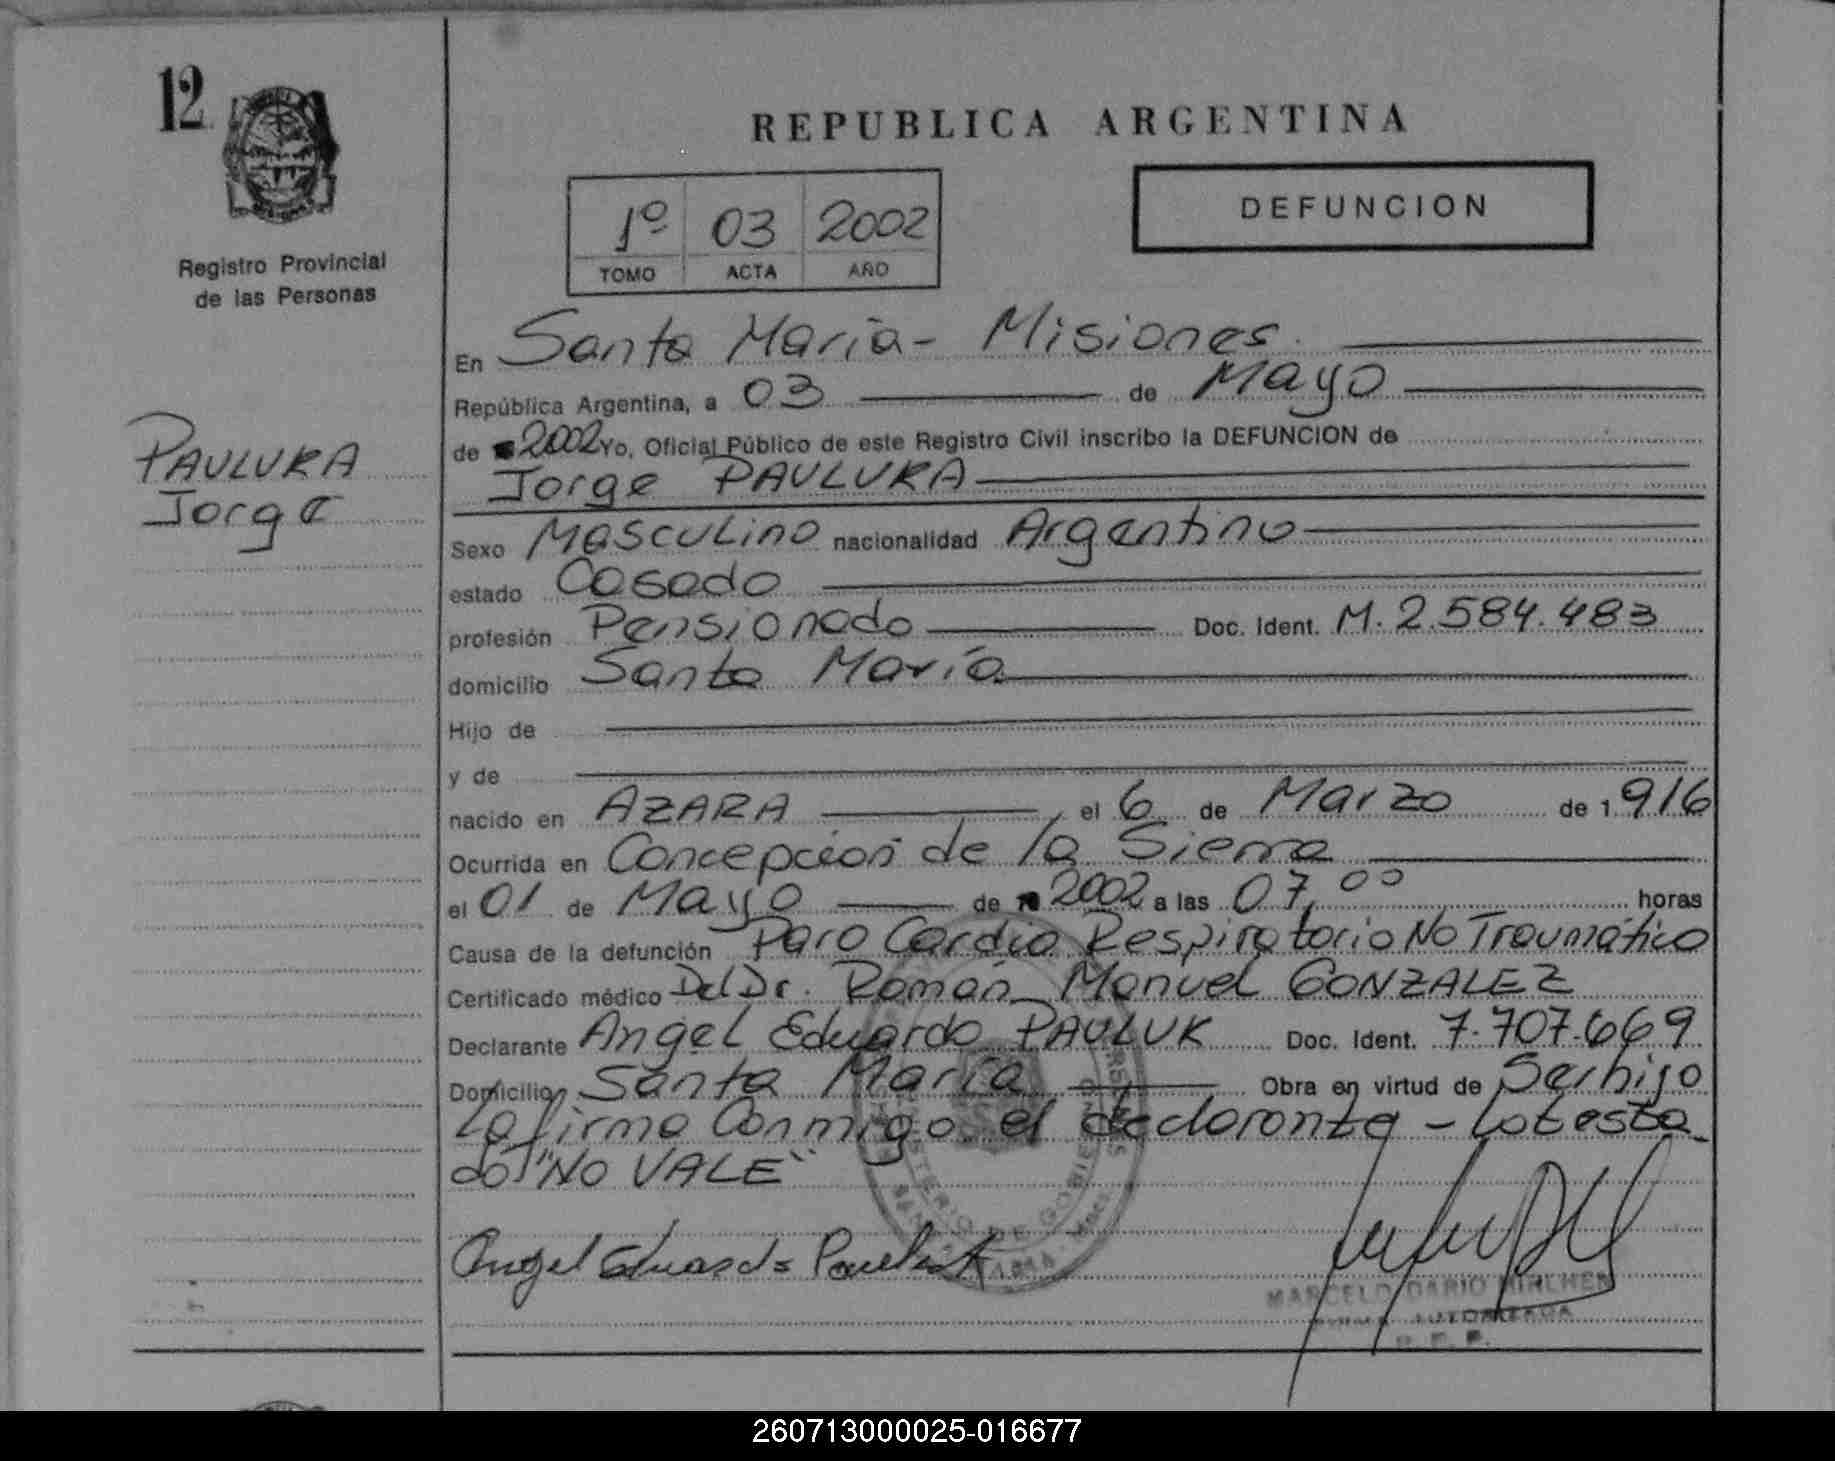 12
REPUBLICA ARGENTINA
Registro Provincial
de las Personas
1º 03 2002
TOMO ACTA AÑO
DEFUNCION
PAULUKA
Jorge
En Santa María - Misiones
República Argentina, a 03 de Mayo
de 2002 Yo, Oficial Público de este Registro Civil inscribo la DEFUNCION de
Jorge PAULUKA
Sexo Masculino nacionalidad Argentino
estado Casado
profesión Pensionado Doc. Ident. M. 2.584.483
domicilio Santa María
Hijo de
y de
nacido en AZARA el 6 de Marzo de 1916
Ocurrida en Concepción de la Sierra
el 01 de Mayo de 2002 a las 07,00 horas
Causa de la defunción Paro Cardio Respiratorio No Traumático
Certificado médico Del Dr. Román Manuel GONZALEZ
Declarante Angel Eduardo PAULUK Doc. Ident. 7.707.669
Domicilio Santa María Obra en virtud de Ser hijo
La firma Conmigo el declarante - Lo testa
do "NO VALE"
Angel Eduardo Pauluk
MINISTERIO DE GOBIERNO
MARCELO DARIO
FIRMA AUTORIZADA
R. P. P.
260713000025-016677